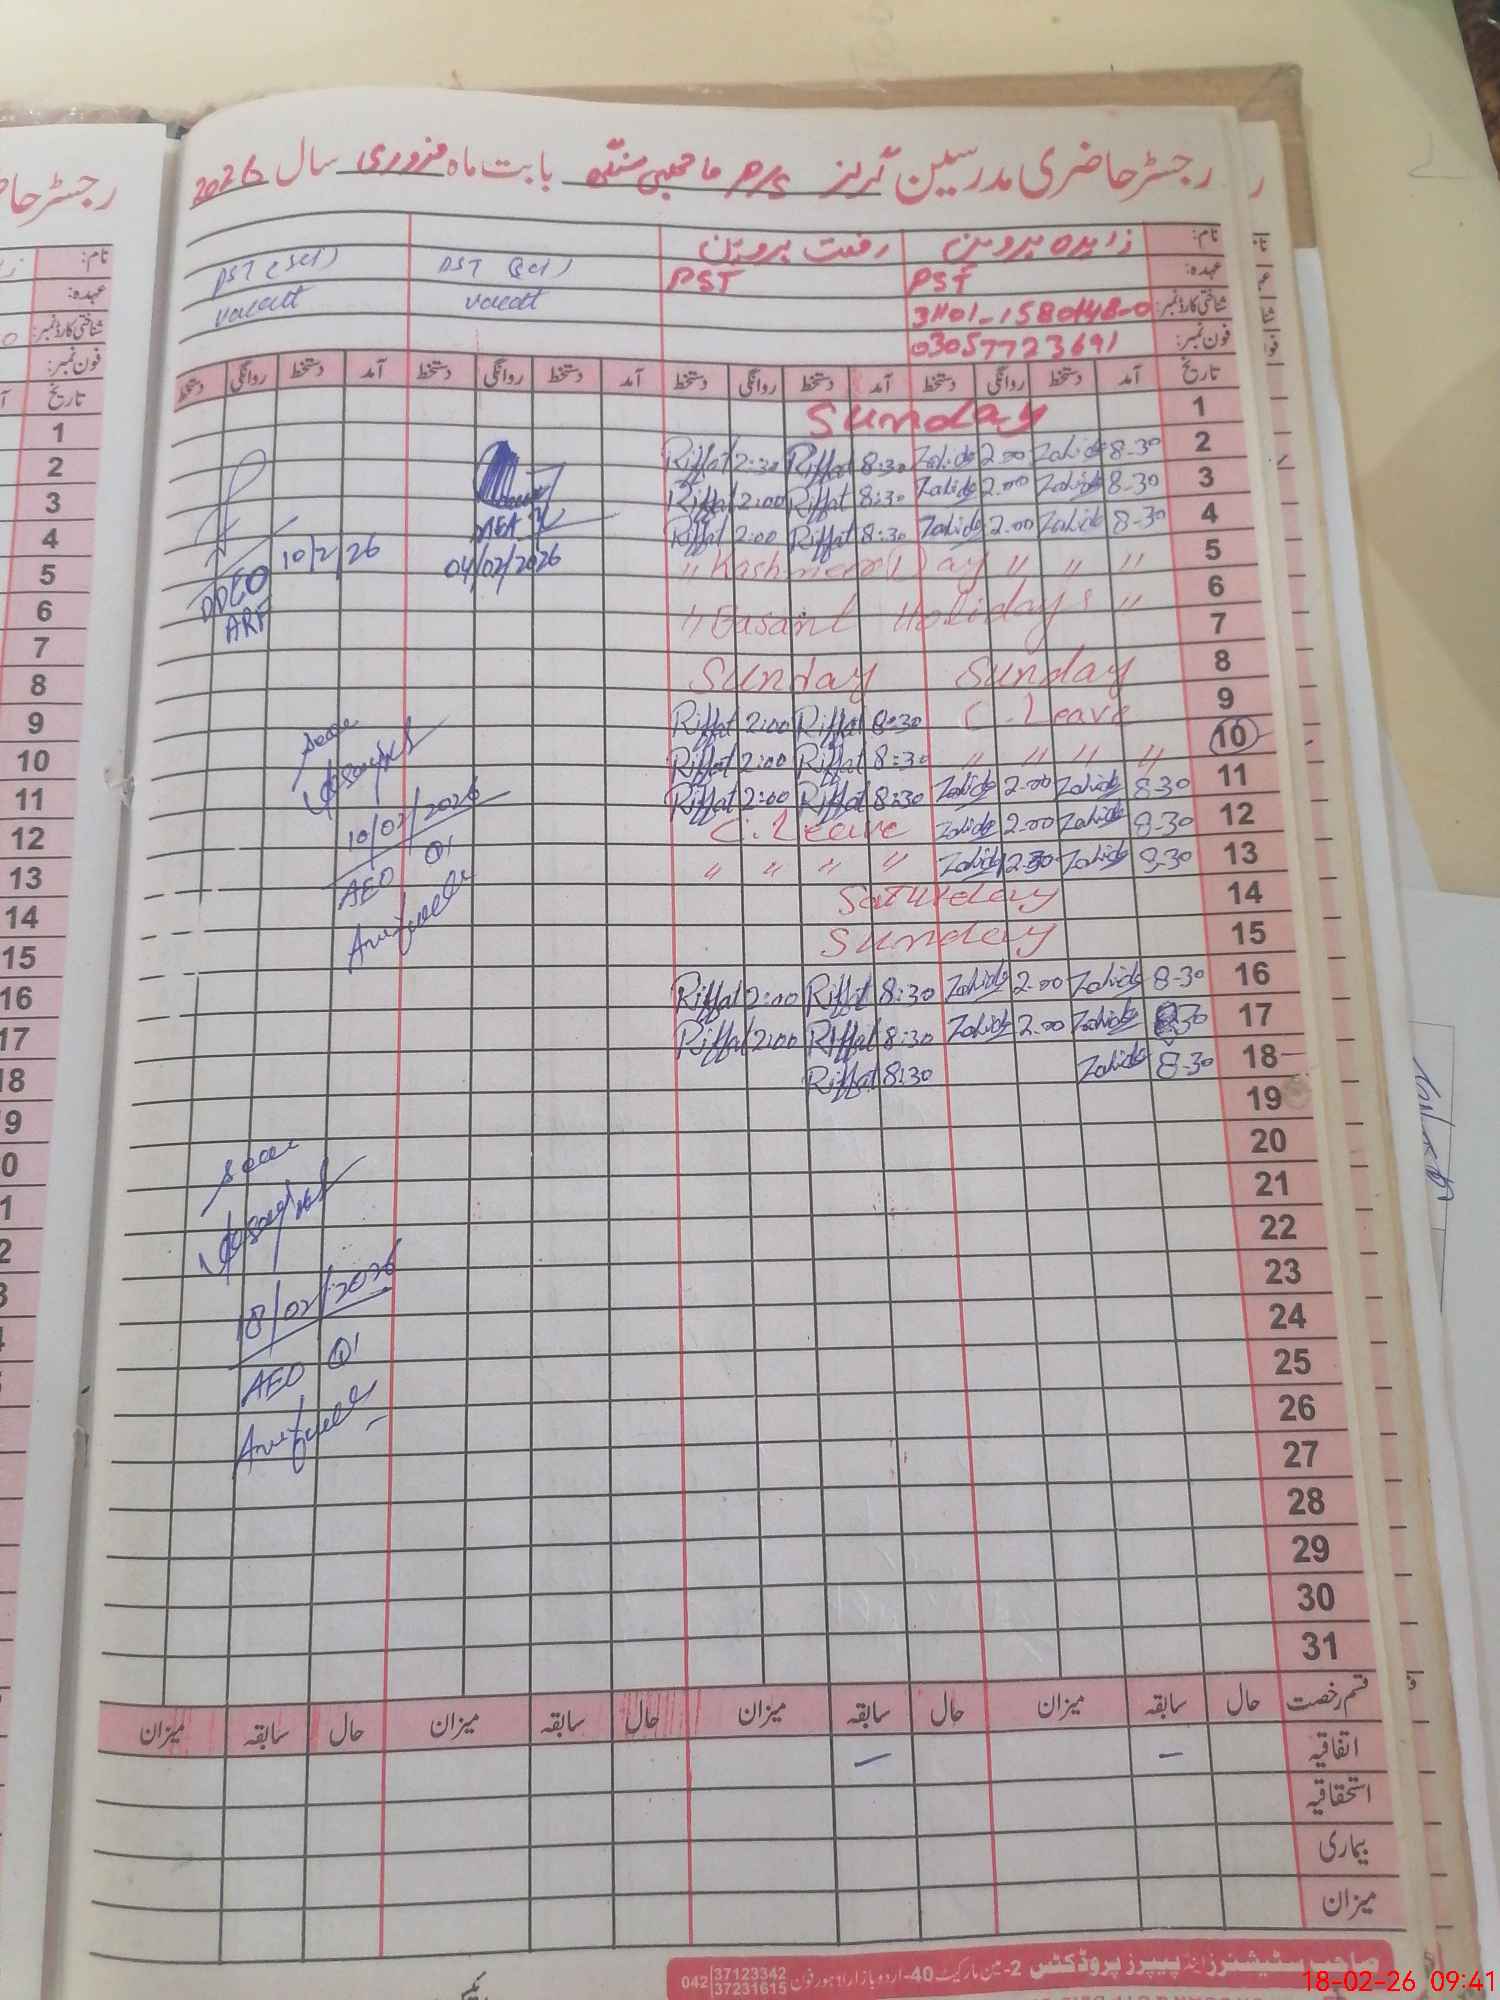 رجسٹر حاضری مدرسین گرلز پرائمری بابت ماہ فروری سال 2026
نام: زاہدہ پروین رفعت پروین
عہدہ: PST PST PST (SE1) PST (SE1)
شناختی کارڈ نمبر: 31101-1580148-0 vacant vacant
فون نمبر: 03057723691
تاریخ آمد دستخط روانگی دستخط آمد دستخط روانگی دستخط آمد دستخط روانگی دستخط آمد دستخط روانگی دستخط
1 Sunday
2 8-30 Zahida 2.00 Zahida 8:30 Riffat 2:30 Riffat
3 8-30 Zahida 2.00 Zahida 8:30 Riffat 2:00 Riffat
4 8-30 Zahida 2.00 Zahida 8:30 Riffat 2:00 Riffat
MEA
04/02/2026
5 " Kashmeer Day " " "
6
7 " Basant Holidays "
10/2/26
DDEO
ARF
8 Sunday Sunday
9 C. Leave 8:30 Riffat 2:00 Riffat
10 " " " " 8:30 Riffat 2:00 Riffat
11 8-30 Zahida 2.00 Zahida 8:30 Riffat 2:00 Riffat
12 8-30 Zahida 2.00 Zahida C. Leave
13 8-30 Zahida 12.30 Zahida " " " "
14 Saturday
15 Sunday
seen
10/02/2026
AEO
16 8-30 Zahida 2.00 Zahida 8:30 Riffat 2:00 Riffat
17 8-30 Zahida 2.00 Zahida 8:30 Riffat 2:00 Riffat
18 8-30 Zahida 8:30 Riffat
19
20
21
22
23
24
25
26
27
28
29
30
31
seen
18/02/2026
AEO
قسم رخصت حال سابقہ میزان حال سابقہ میزان حال سابقہ میزان حال سابقہ میزان
اتفاقیہ — —
استحقاقیہ
بیماری
میزان
صاحبر سٹیشنرز اینڈ پیپرز پروڈکٹس 2-مین مارکیٹ 40-اردو بازار لاہور فون 042 37123342 37231615
18-02-26 09:41